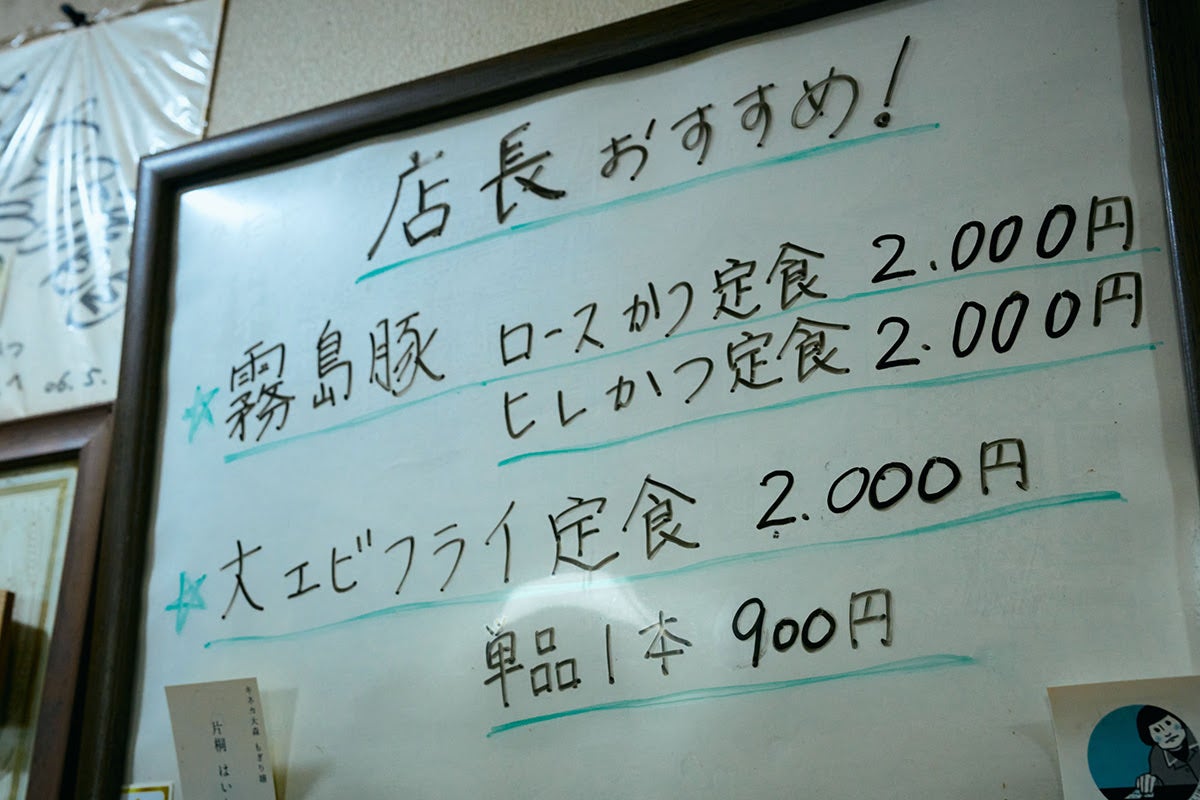 店長おすすめ!
☆霧島豚 ロースかつ定食 2.000円
ヒレかつ定食 2.000円
☆大エビフライ定食 2.000円
単品1本 900円
06.5.
キネカ大森 もぎり嬢
片桐 はい